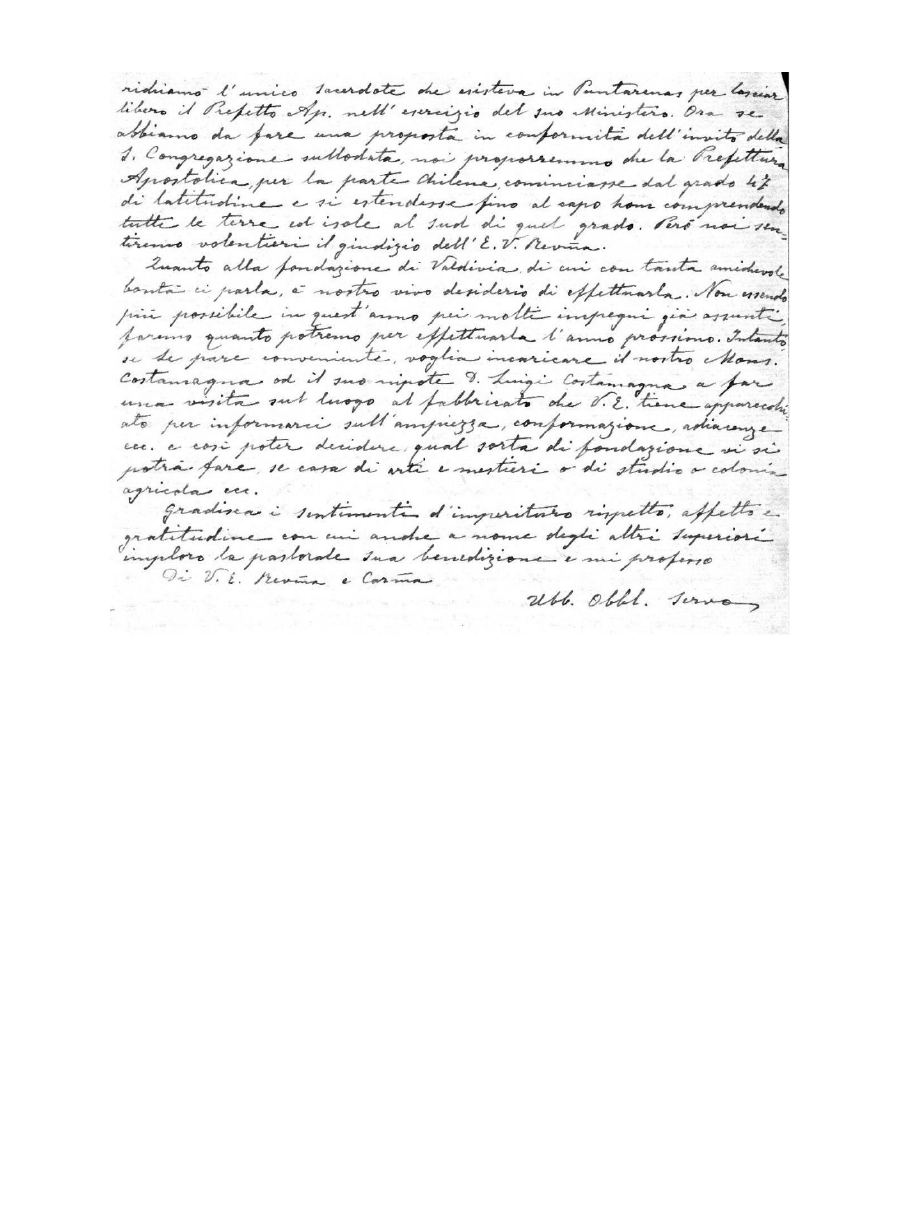 ridiamo l'unico Sacerdote che esisteva in Puntarenas per lasciar
libero il Prefetto Ap. nell'esercizio del suo Ministero. Ora se
abbiamo da fare una proposta in conformità dell'invito della
S. Congregazione sullodata, noi proporremmo che la Prefettura
Apostolica, per la parte Chilena, cominciasse dal grado 47
di latitudine e si estendesse fino al capo horn comprendendo
tutte le terre ed isole al sud di quel grado. Però noi sen-
tiremo volentieri il giudizio dell'E. V. Revm̃a.
Quanto alla fondazione di Valdivia, di cui con tanta amichevole
bontà ci parla, è nostro vivo desiderio di effettuarla. Non essendo
più possibile in quest'anno pei molti impegni già assunti,
faremo quanto potremo per effettuarla l'anno prossimo. Intanto
se Le pare conveniente, voglia incaricare il nostro Mons.
Costamagna od il suo nipote D. Luigi Costamagna a far
una visita sul luogo al fabbricato che V. E. tiene apparecchi-
ato per informarci sull'ampiezza, conformazione, adiacenze
ecc. e così poter decidere, qual sorta di fondazione vi si
potrà fare, se casa di arti e mestieri o di studio o colonia
agricola ecc.
Gradisca i sentimenti d'imperituro rispetto, affetto e
gratitudine con cui anche a nome degli altri Superiori
imploro la pastorale sua benedizione e mi professo
Di V. E. Revm̃a e Carm̃a
Ubb. Obbl. Servo